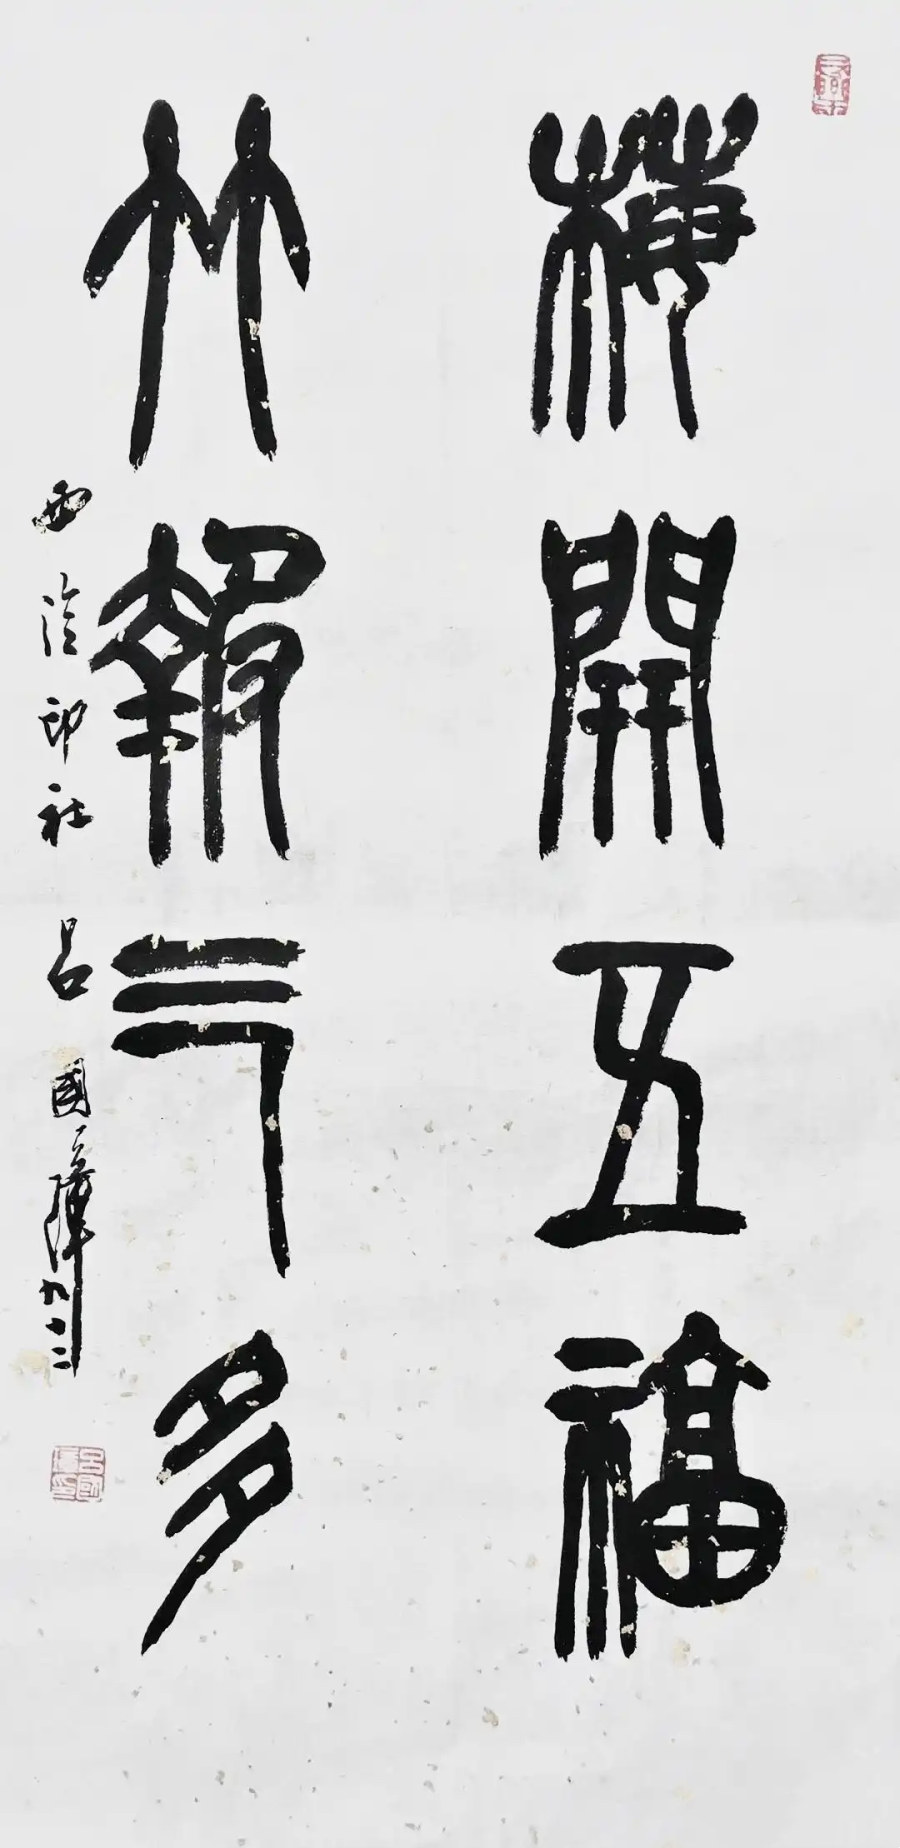 梅開五福
竹報三多
西泠印社 呂國璋九十二
呂國璋印